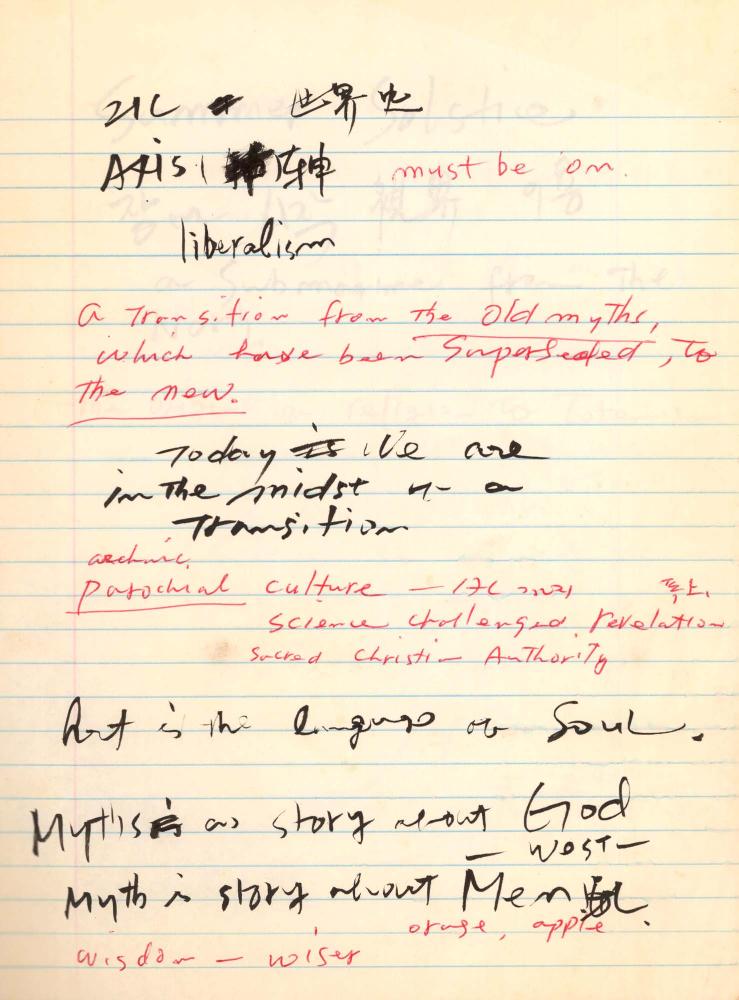 21C 世界史
Axis 車軸 must be on.
liberalism
a Transition from The Old myths,
which have been Superseded, To
The new.
Today is We are
in The midst of a
Transition
archaic
parochial culture — 17C
Science challenged Revelation
Sacred Christian Authority
Art is the language of Soul.
Myth is as story about God
— West —
Myth is story about Men
orange, apple
wisdom — wiser